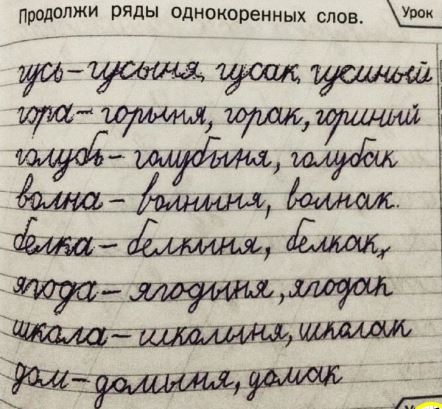 Продолжи ряды однокоренных слов.
Урок
гусь – гусыня, гусак, гусиный
гора – горыня, горак, гориный
голубь – голубыня, голубак
волна – волныня, волнак.
белка – белкыня, белкак,
ягода – ягодыня, ягодак
школа – школыня, школак
дом – домыня, домак